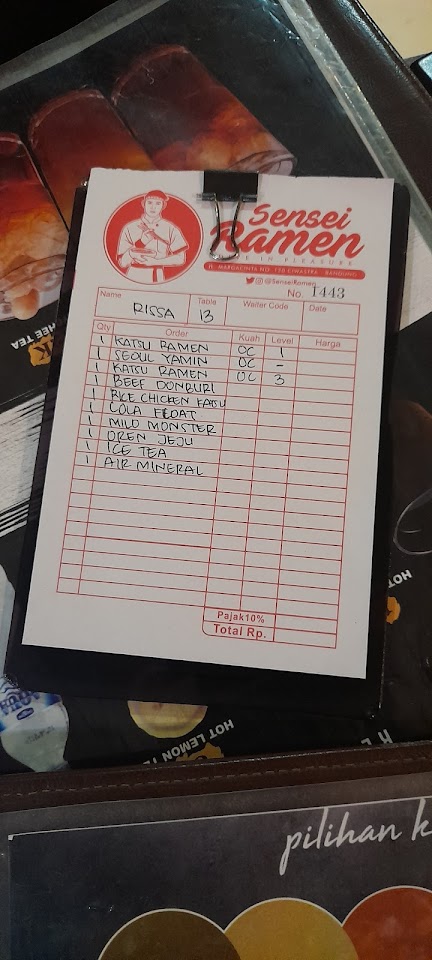 Sensei
Ramen
E IN PLEASURE
JL. MARGACINTA NO. 158 CIWASTRA - BANDUNG
@SenseiRamen
No. 1443
Name RISSA Table 13 Waiter Code Date
Qty Order Kuah Level Harga
1 KATSU RAMEN OC 1
1 SEOUL YAMIN OC -
1 KATSU RAMEN OC 3
1 BEEF DONBURI
1 RICE CHICKEN KATSU
1 COLA FLOAT
1 MILO MONSTER
1 OREN JEJU
1 ICE TEA
1 AIR MINERAL
Pajak10%
Total Rp.
CHEE TEA
HOT
HOT LEMON TE
pilihan k